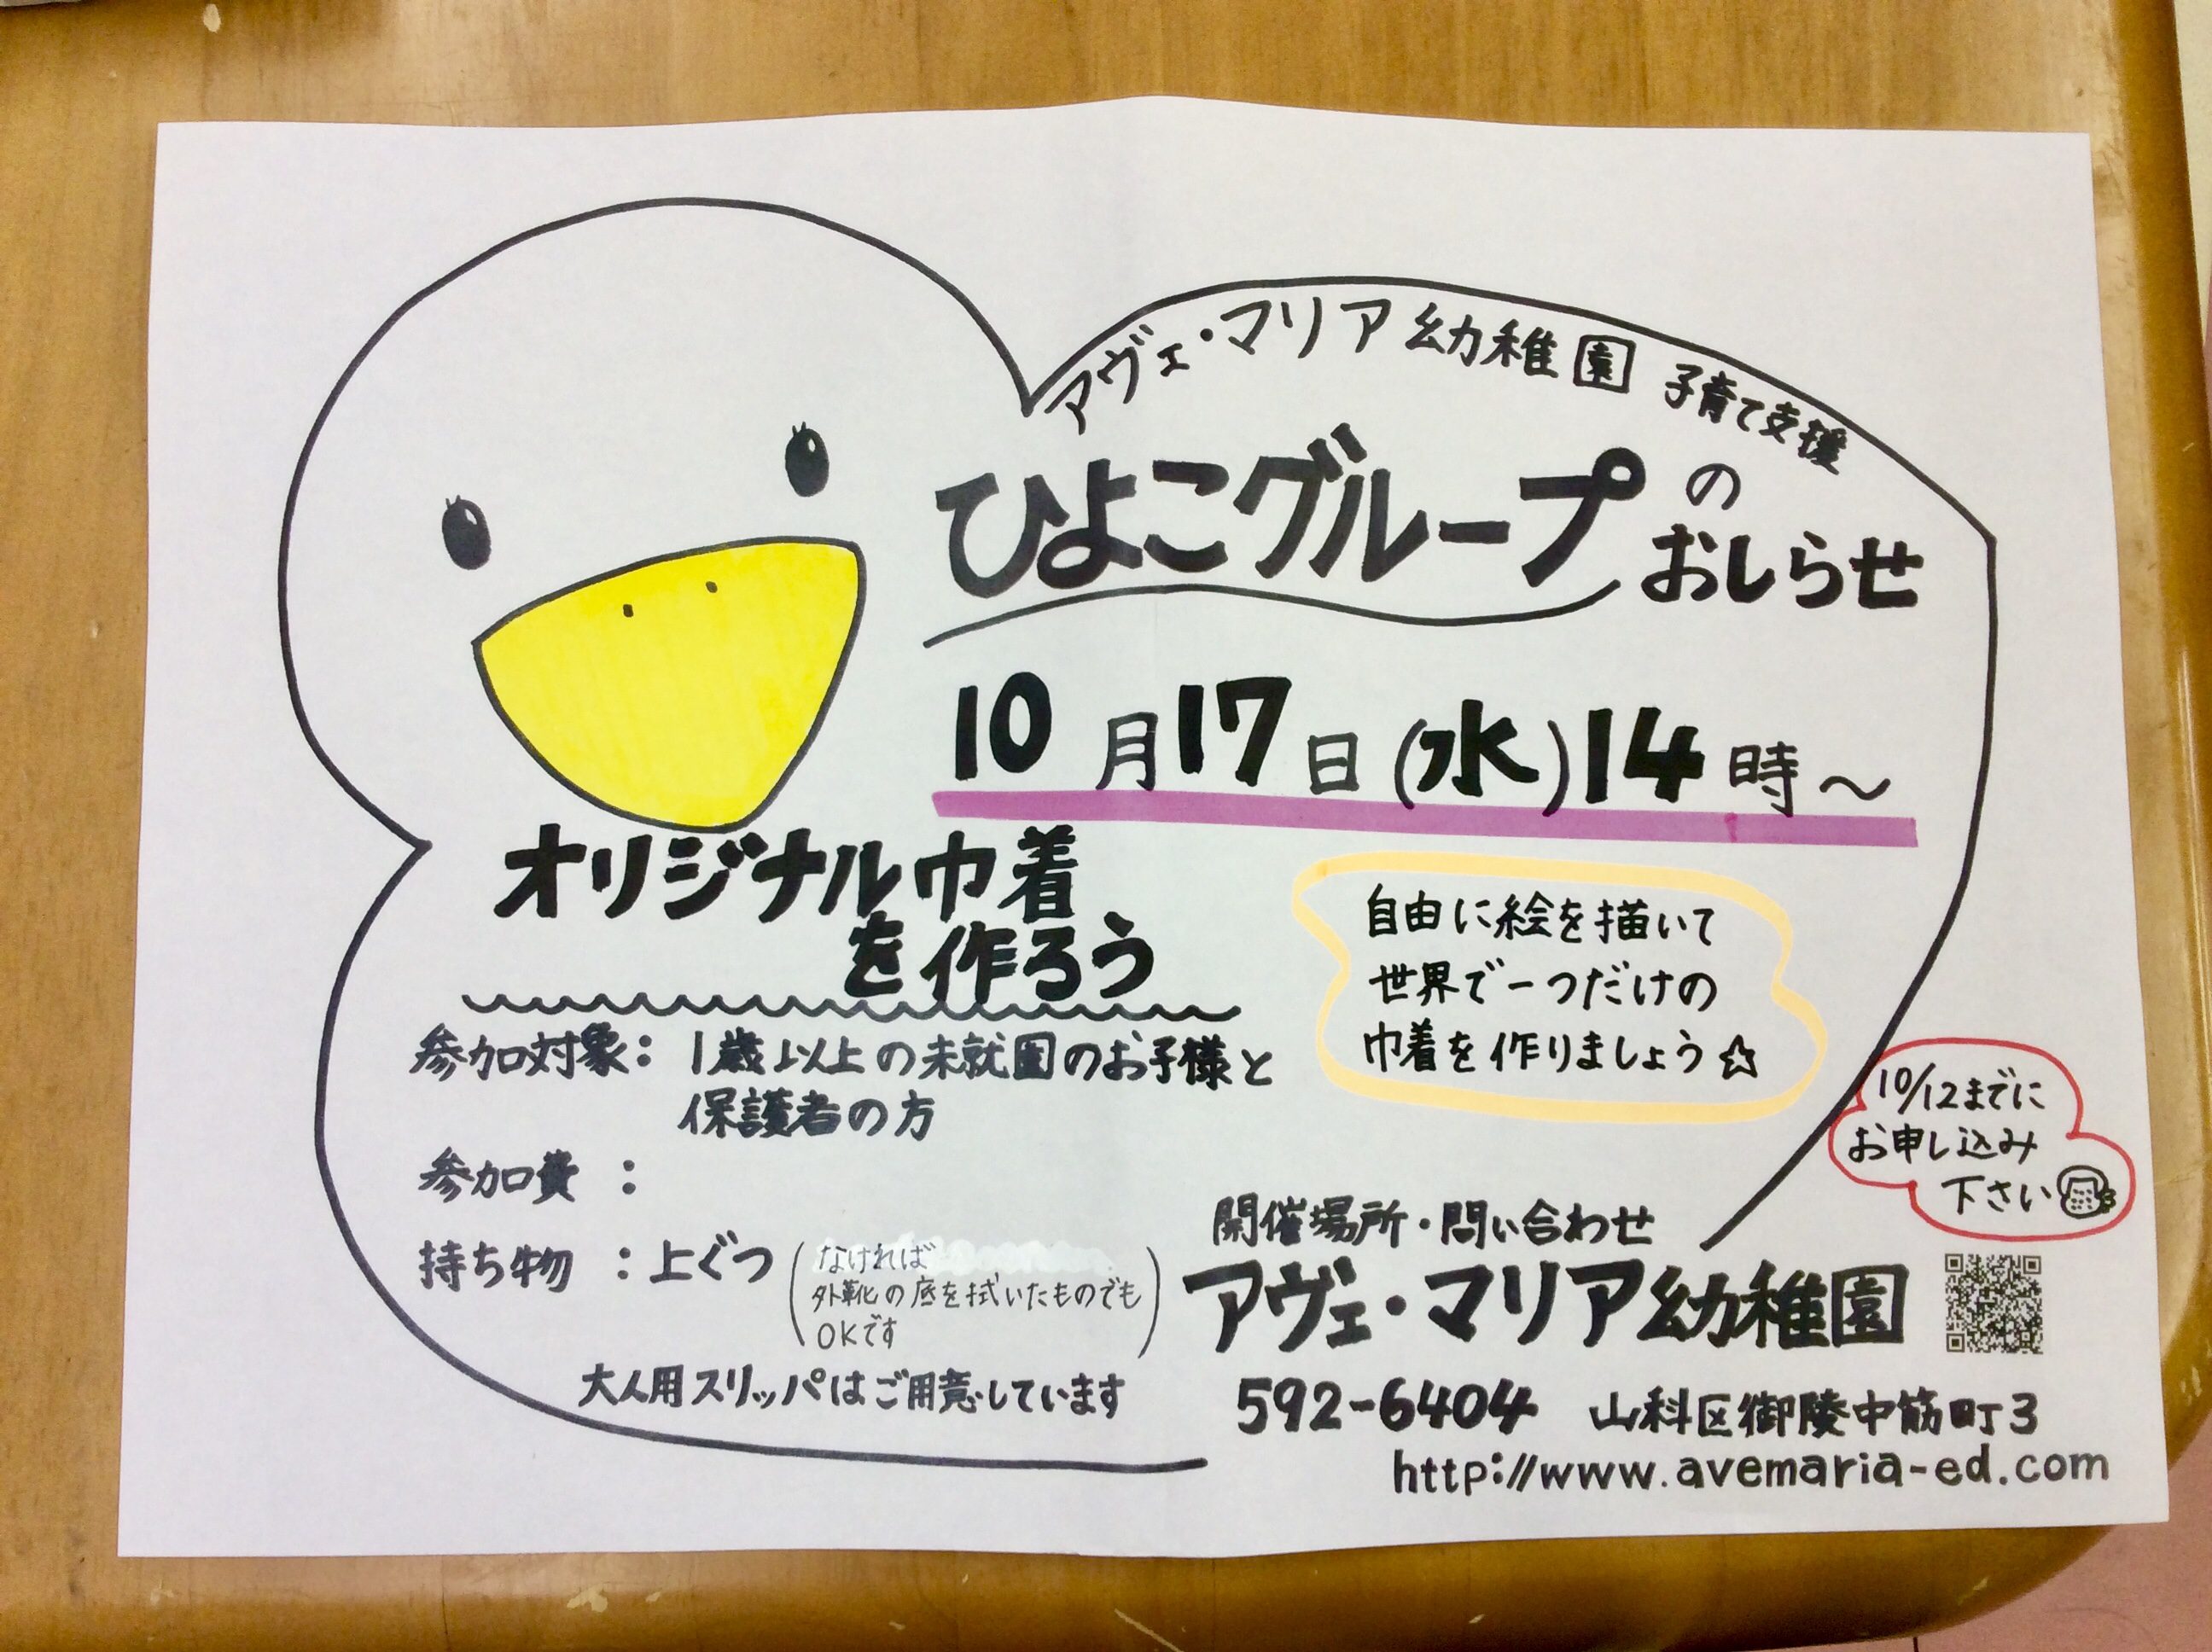 アヴェ・マリア幼稚園 子育て支援
ひよこグループの
おしらせ
10月17日(水)14時〜
オリジナル巾着
を作ろう
自由に絵を描いて
世界で一つだけの
巾着を作りましょう☆
参加対象：1歳以上の未就園のお子様と
保護者の方
参加費：
持ち物：上ぐつ(なければ
外靴の底を拭いたものでも
OKです)
大人用スリッパはご用意しています
10/12までに
お申し込み
下さい
開催場所・問い合わせ
アヴェ・マリア幼稚園
592-6404 山科区御陵中筋町3
http://www.avemaria-ed.com